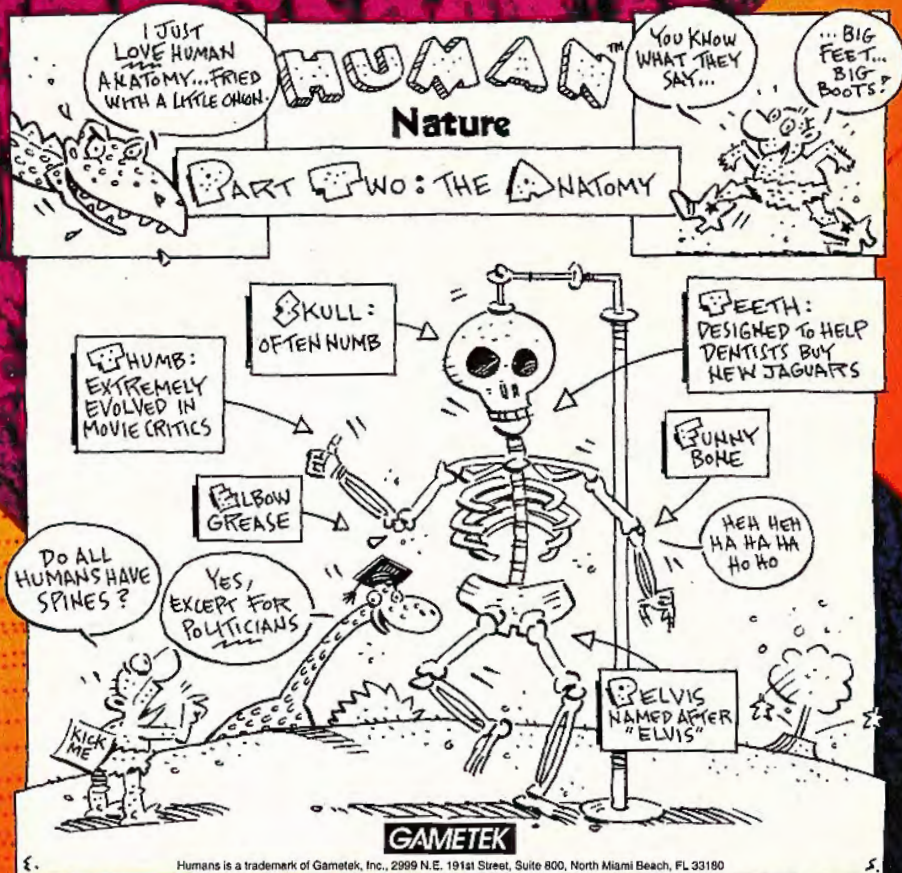 I JUST
LOVE HUMAN
ANATOMY...FRIED
WITH A LITTLE ONION.
HUMAN™
Nature
YOU KNOW
WHAT THEY
SAY...
... BIG
FEET...
BIG
BOOTS!
PART TWO: THE ANATOMY
SKULL:
OFTEN NUMB
TEETH:
DESIGNED TO HELP
DENTISTS BUY
NEW JAGUARS
THUMB:
EXTREMELY
EVOLVED IN
MOVIE CRITICS
FUNNY
BONE
ELBOW
GREASE
HEH HEH
HA HA HA
HO HO
DO ALL
HUMANS HAVE
SPINES?
YES,
EXCEPT FOR
POLITICIANS
PELVIS
NAMED AFTER
"ELVIS"
KICK
ME
GAMETEK
Humans is a trademark of Gametek, Inc., 2999 N.E. 191st Street, Suite 800, North Miami Beach, FL 33180